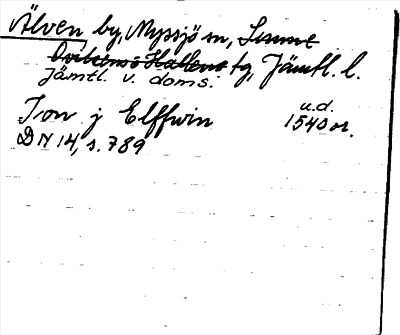 Älven by, Myssjö sn, Sunne
Oviken o Hallens tg, Jämtl. l.
Jämtl. v. doms.
Jon j Elffwin u.d. 1540 or.
DN 14, s. 789